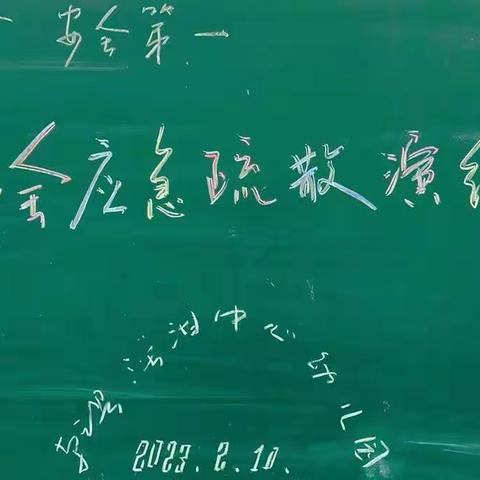 安全第一
全应急疏散演练
活动中心幼儿园
2023.2.10.